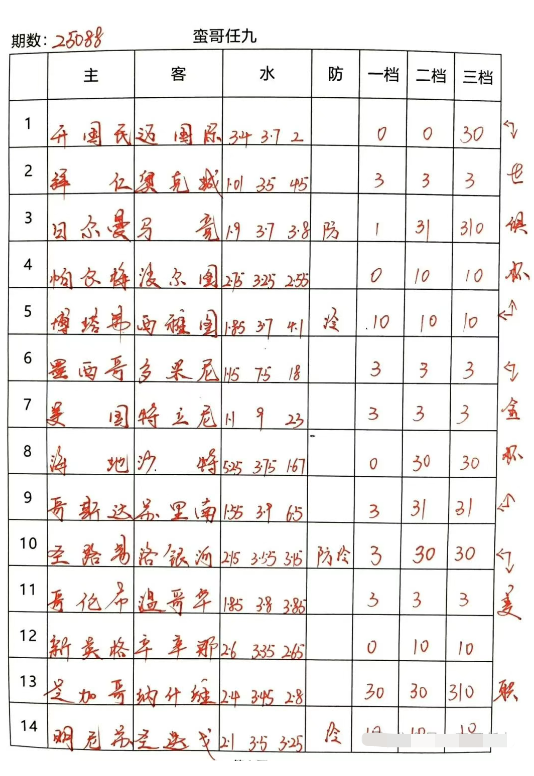 期数：25088 蛮哥任九
主 客 水 防 一档 二档 三档
1 开国民 迈国际 3.4 3.7 2 0 0 30
2 拜仁 奥克城 1.01 35 45 3 3 3 世
3 日尔曼 马竞 1.9 3.7 3.8 防 1 31 310 俱
4 帕尔梅 波尔图 2.75 3.25 2.55 0 10 10 杯
5 博塔弗 西雅图 1.85 3.7 4.1 冷 10 10 10
6 墨西哥 多米尼 1.15 7.5 18 3 3 3
7 美国 特立尼 1.1 9 23 3 3 3 金
8 海地 沙特 5.25 3.75 1.67 0 30 30 杯
9 哥斯达 苏里南 1.55 3.9 6.5 3 31 31
10 圣路易 洛银河 2.15 3.55 3.15 防冷 3 30 30
11 哥伦布 温哥华 1.85 3.8 3.85 3 3 3 美
12 新英格 辛辛那 2.6 3.35 2.65 0 10 10
13 芝加哥 纳什维 2.4 3.45 2.8 30 30 310 职
14 明尼苏 圣迭戈 2.1 3.5 3.25 冷